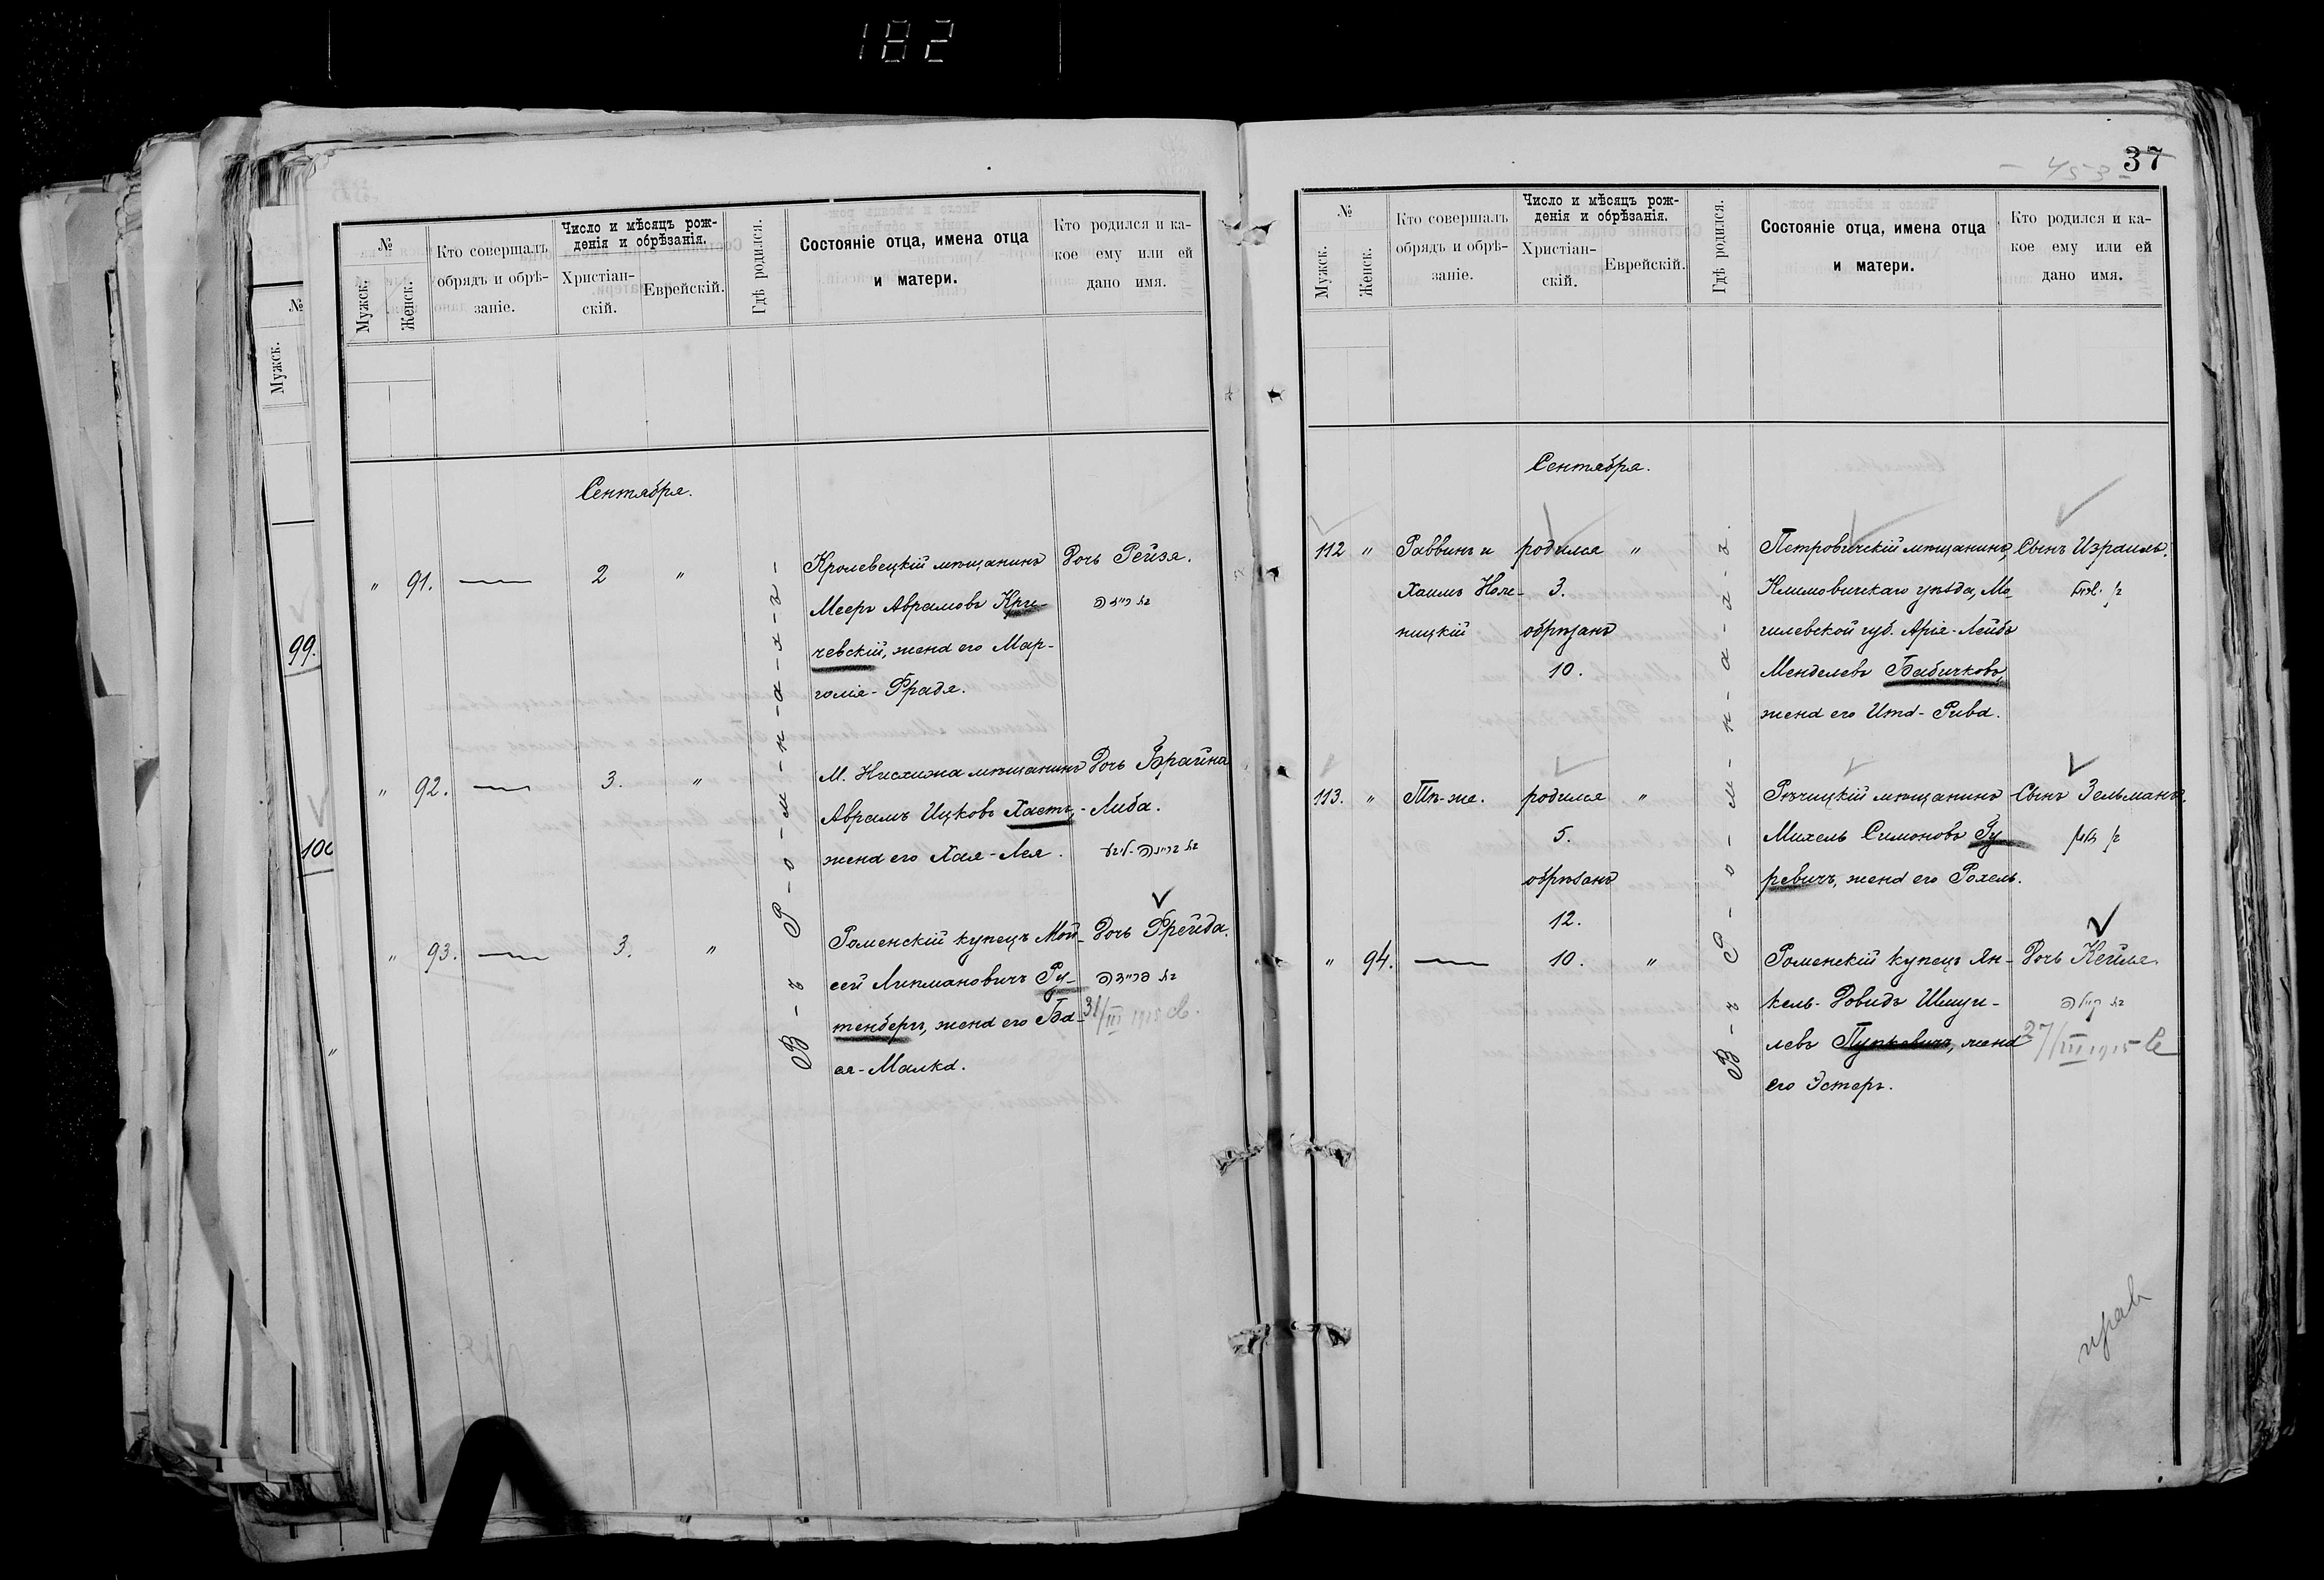 182
№
Мужск.
99.
100
№
Мужск.
Женск.
Кто совершалъ
обрядъ и обрѣ-
заніе.
Число и мѣсяцъ рож-
денія и обрѣзанія.
Христіан-
скій.
Еврейскій.
Гдѣ родился.
Состояніе отца, имена отца
и матери.
Кто родился и ка-
кое ему или ей
дано имя.
Сентября.
В-ъ Р-о-м-н-а-х-ъ-
" 91. — 2 "
Кролевецкій мѣщанинъ
Мееръ Аврамовъ Кри-
чевскій, жена его Мар-
голія-Фрадя.
Дочь Рейзя.
" 92. — 3. "
М. мѣщанинъ
Аврамъ Ицковъ Хастъ,
жена его Хая-Лея.
Дочь Брайна
-Либа.
" 93. — 3. "
Роменскій купецъ Мой-
сей Липмановичъ Ру-
тенбергъ, жена его Ба-
ся-Малка.
Дочь Фрейда.
31/III 1915
37
453
№
Мужск.
Женск.
Кто совершалъ
обрядъ и обрѣ-
заніе.
Число и мѣсяцъ рож-
денія и обрѣзанія.
Христіан-
скій.
Еврейскій.
Гдѣ родился.
Состояніе отца, имена отца
и матери.
Кто родился и ка-
кое ему или ей
дано имя.
Сентября.
В-ъ Р-о-м-н-а-х-ъ.
112 "
Раввинъ и
Хаимъ
ницкій
родился "
3.
обрѣзанъ
10.
Петровичскій мѣщанинъ,
Климовичскаго уѣзда, Мо-
гилевской губ. Арія-Лейбъ
Менделевъ Бабичковъ,
жена его Ита-Рива.
Сынъ Израиль.
113. "
Тѣ-же.
родился "
5.
обрѣзанъ
12.
Рѣчицкій мѣщанинъ
Михель Симоновъ Гу
ревичъ, жена его Рохель.
Сынъ Зельманъ.
" 94. — 10. "
Роменскій купецъ Ян-
кель-Довидъ Шмуи-
левъ Пупкевичъ, жена
его Эстеръ.
Дочь Кейля.
27/III 1915